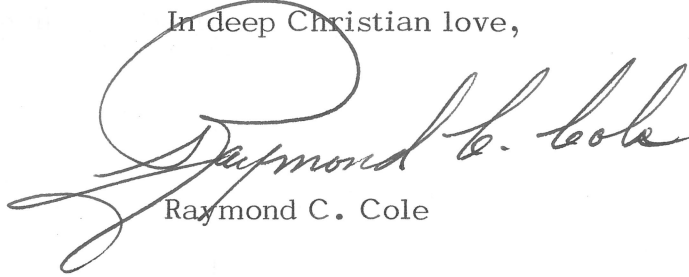 In deep Christian love,
Raymond C. Cole
Raymond C. Cole